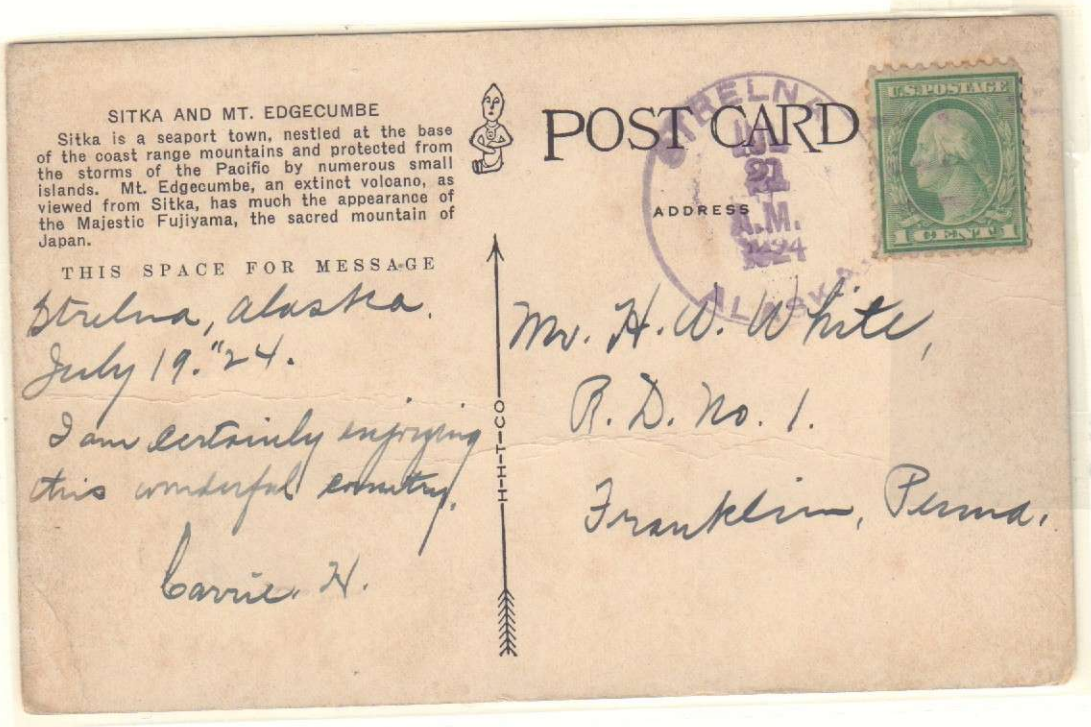 SITKA AND MT. EDGECUMBE
Sitka is a seaport town, nestled at the base
of the coast range mountains and protected from
the storms of the Pacific by numerous small
islands. Mt. Edgecumbe, an extinct volcano, as
viewed from Sitka, has much the appearance of
the Majestic Fujiyama, the sacred mountain of
Japan.
THIS SPACE FOR MESSAGE
Strelna, Alaska.
July 19. "24.
I am certainly enjoying
this wonderful country.
Carrie. H.
H-H-T-CO
POST CARD
ADDRESS
STRELNA
A.M.
1924
ALASKA
U.S. POSTAGE
1 CENT 1
Mr. H. W. White,
R. D. No. 1.
Franklin, Penna.